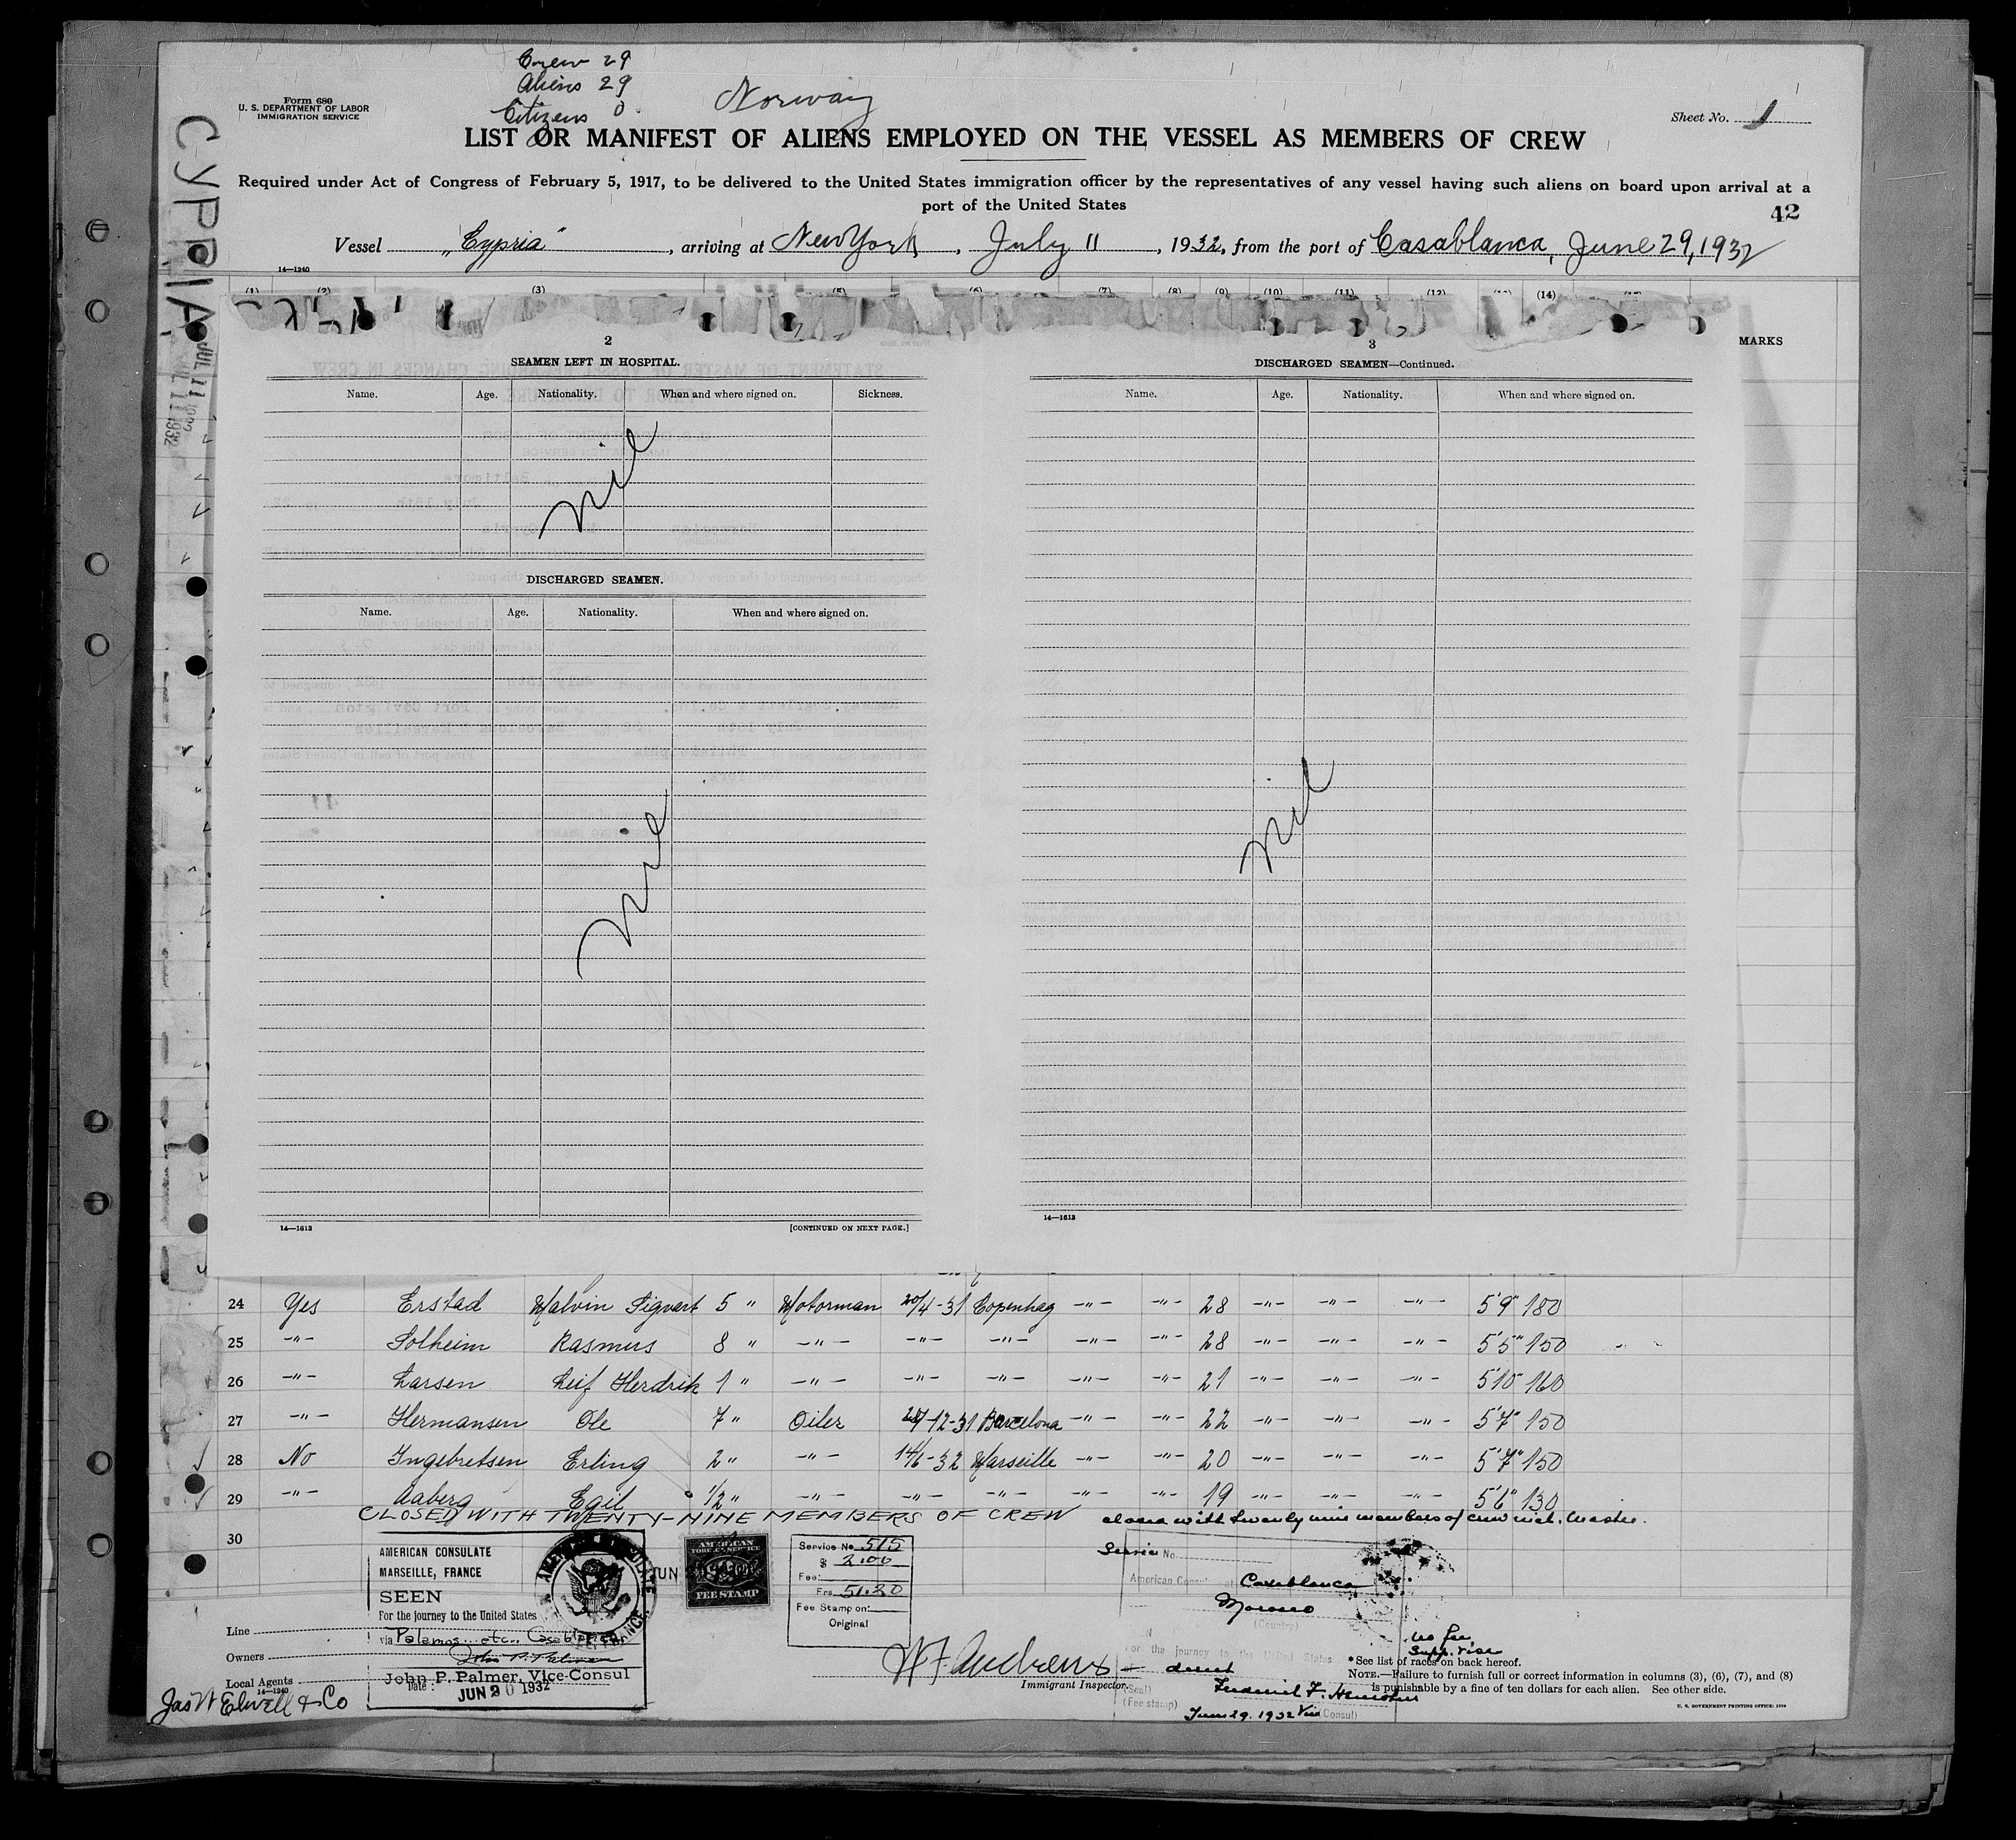 Crew 29
Aliens 29
Citizens 0
Norway
Form 680
U. S. DEPARTMENT OF LABOR
IMMIGRATION SERVICE
Sheet No. 1
LIST OR MANIFEST OF ALIENS EMPLOYED ON THE VESSEL AS MEMBERS OF CREW
Required under Act of Congress of February 5, 1917, to be delivered to the United States immigration officer by the representatives of any vessel having such aliens on board upon arrival at a
port of the United States
42
Vessel "Cypria", arriving at New York, July 11, 1932, from the port of Casablanca, June 29, 1932
14—1240
CYPRIA
JUL 11 1932
(1) (2) (3) (5) (6) (7) (8) (9) (10) (11) (12) (14)
MARKS
2
SEAMEN LEFT IN HOSPITAL.
Name. Age. Nationality. When and where signed on. Sickness.
nil
DISCHARGED SEAMEN.
Name. Age. Nationality. When and where signed on.
nil
14—1613 [CONTINUED ON NEXT PAGE.]
3
DISCHARGED SEAMEN—Continued.
Name. Age. Nationality. When and where signed on.
nil
14—1613
24 Yes Erstad Malvin Sigvart 5 " Motorman 20/4-31 Copenhag -"- -"- 28 -"- -"- -"- 5'9" 180
25 -"- Solheim Rasmus 8 " -"- -"- -"- -"- -"- 28 -"- -"- -"- 5'5" 150
26 -"- Larsen Leif Herdrik 1 " -"- -"- -"- -"- -"- 21 -"- -"- -"- 5'10" 160
27 -"- Hermansen Ole 7 " Oiler -12-31 Barcelona -"- -"- 22 -"- -"- -"- 5'7" 150
28 No Ingebretsen Erling 2 " -"- 14/6-32 Marseille -"- -"- 20 -"- -"- -"- 5'7" 150
29 -"- Aaberg Egil 1/2 " -"- -"- -"- -"- -"- 19 -"- -"- -"- 5'6" 130
CLOSED WITH TWENTY-NINE MEMBERS OF CREW
closed with twenty nine members of crew incl. Master.
30
AMERICAN CONSULATE
MARSEILLE, FRANCE
SEEN
For the journey to the United States
via Palamos etc. Casablanca
John P. Palmer
John P. Palmer, Vice-Consul
Date: JUN 20 1932
AMERICAN
FOREIGN SERVICE
FEE STAMP
Service No. 515
$ 2.00
Fee:
Frs. 51.20
Fee Stamp on:
Original
Service No.
American Consul
Casablanca
Morocco
(Country)
For the journey to the United States
direct
(Seal)
(Fee stamp)
June 29. 1932 Vice (Consul)
No fee
Supp. visa
Line
Owners
Local Agents
14—1240
Jas W Elwell & Co
Immigrant Inspector.
*See list of races on back hereof.
NOTE.—Failure to furnish full or correct information in columns (3), (6), (7), and (8)
is punishable by a fine of ten dollars for each alien. See other side.
U. S. GOVERNMENT PRINTING OFFICE: